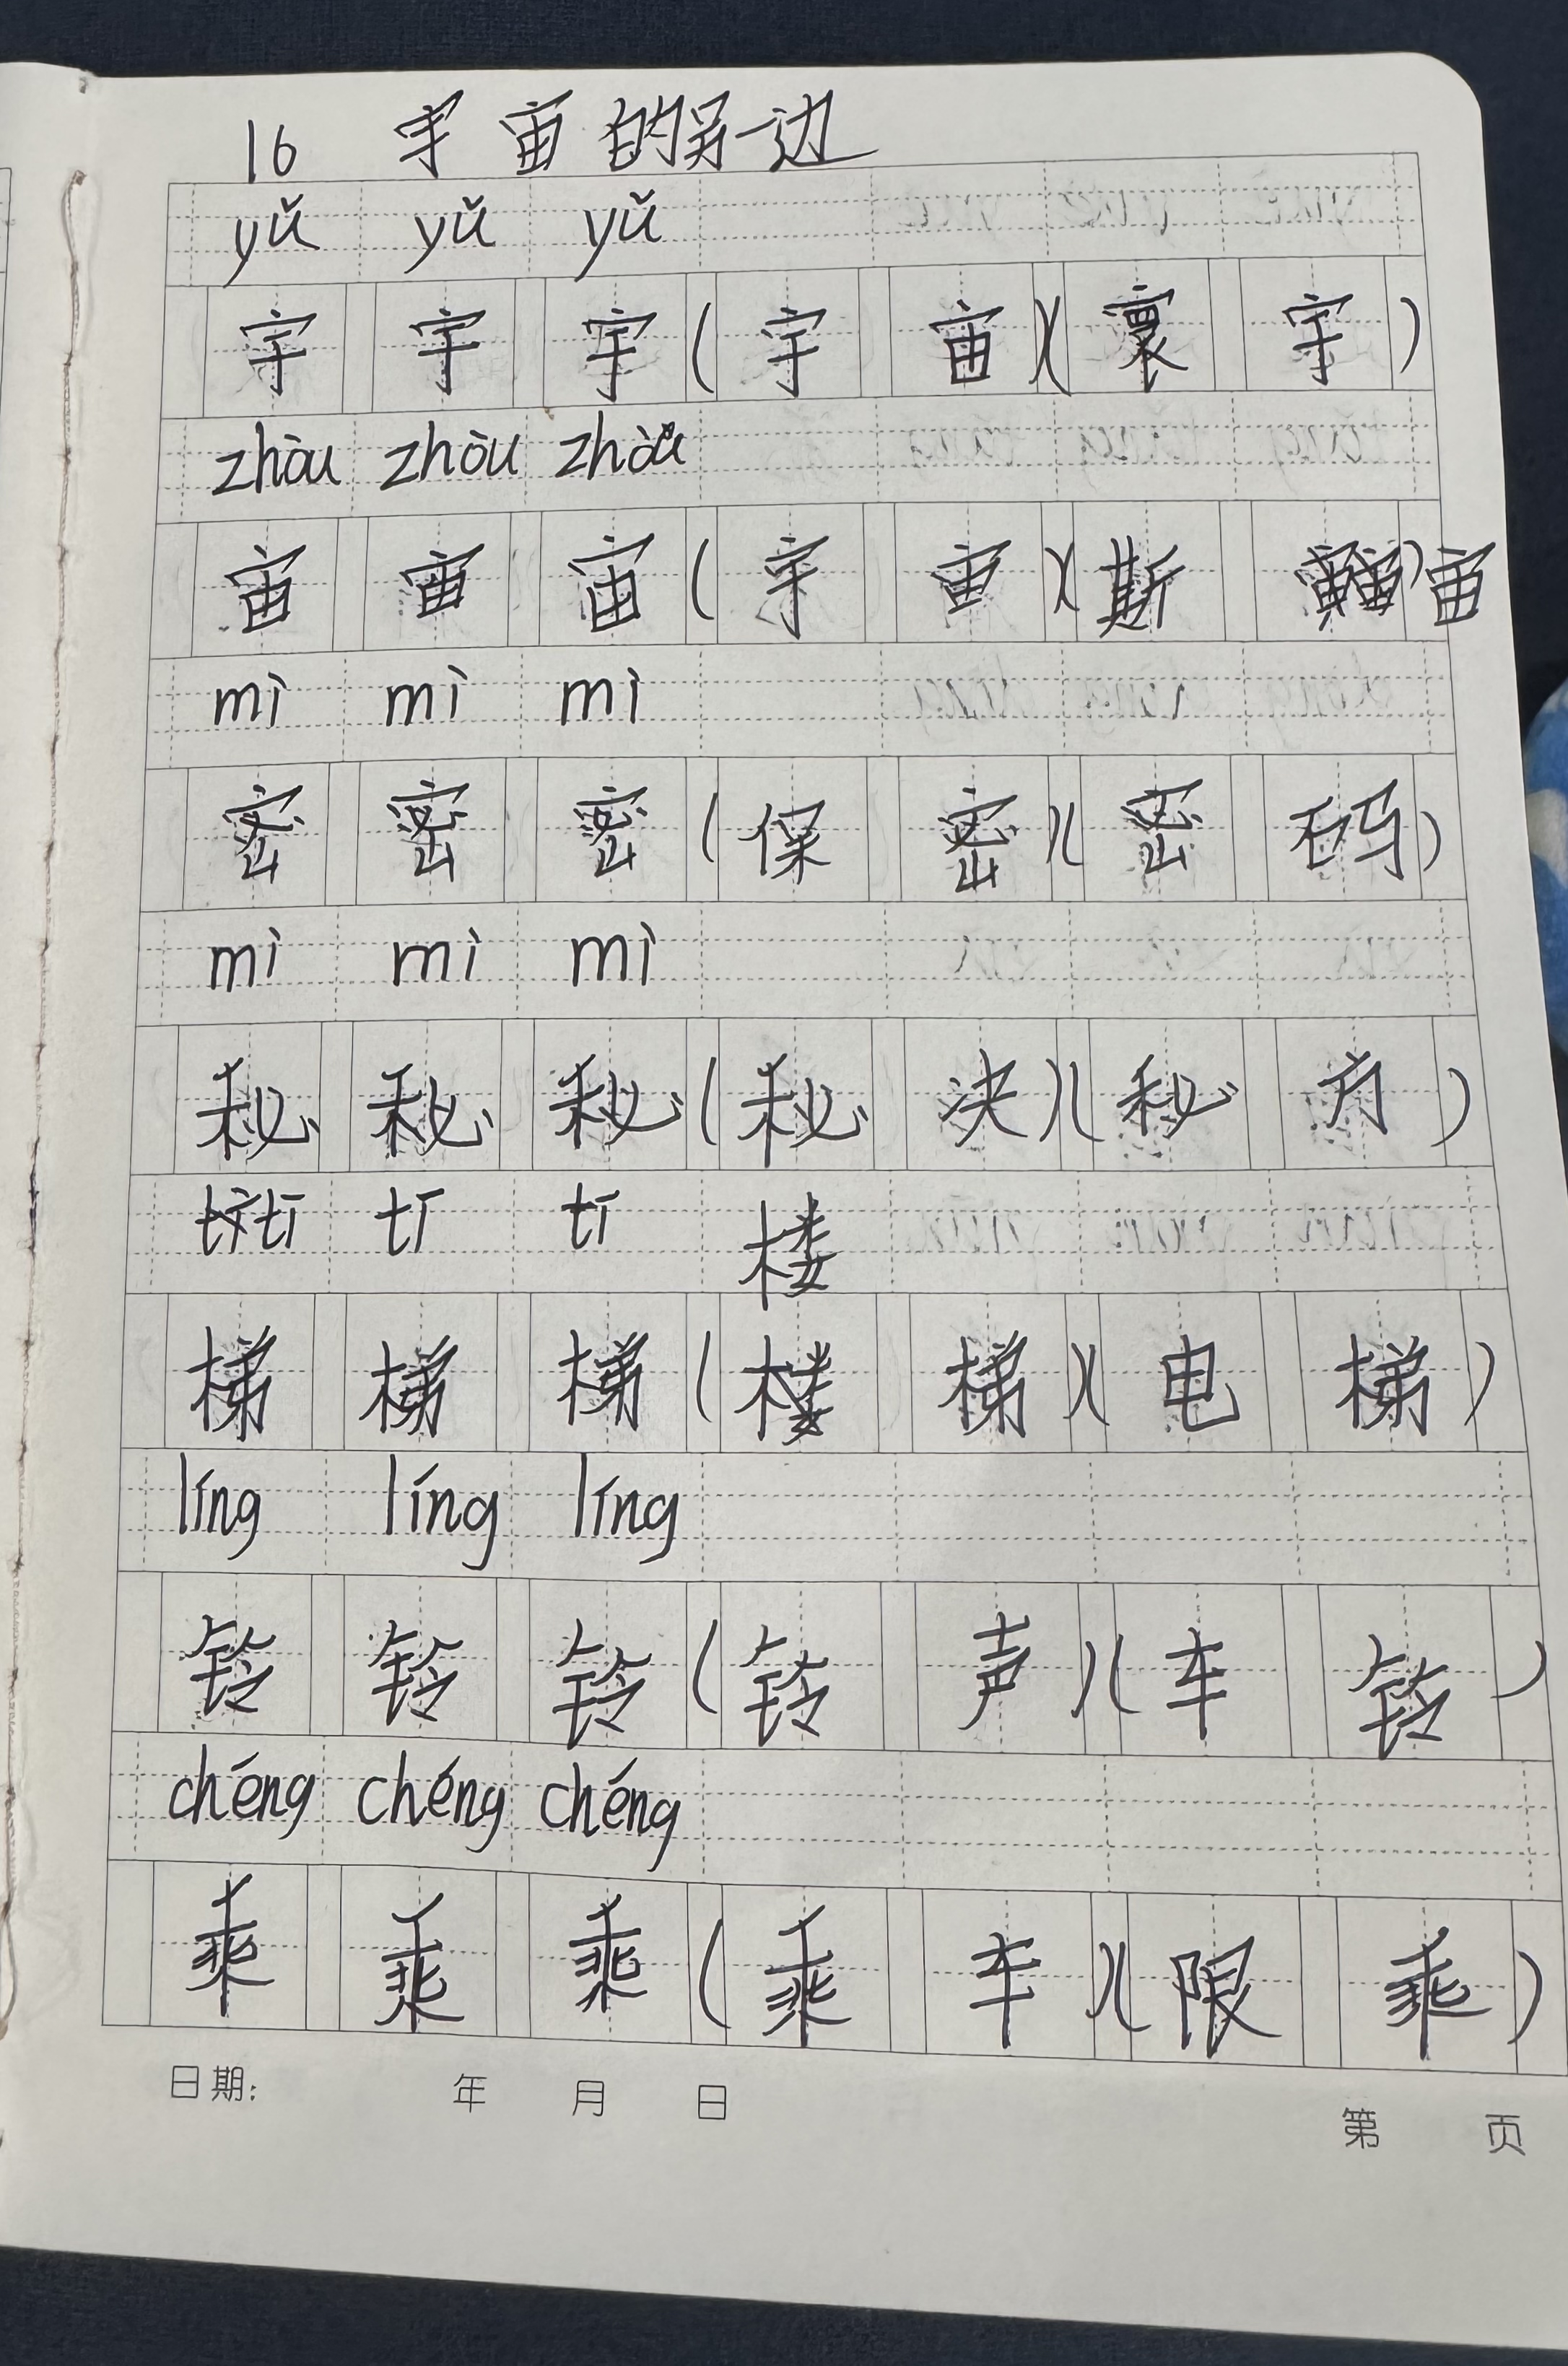 16 宇宙的另一边
yǔ yǔ yǔ
宇 宇 宇 ( 宇 宙 ) ( 寰 宇 )
zhòu zhòu zhòu
宙 宙 宙 ( 宇 宙 ) ( 斯 宙 )
mì mì mì
密 密 密 ( 保 密 ) ( 密 码 )
mì mì mì
秘 秘 秘 ( 秘 决 ) ( 秘 方 )
tī tī tī 楼
梯 梯 梯 ( 梯 ) ( 电 梯 )
líng líng líng
铃 铃 铃 ( 铃 声 ) ( 车 铃 )
chéng chéng chéng
乘 乘 乘 ( 乘 车 ) ( 限 乘 )
日期: 年 月 日
第 页